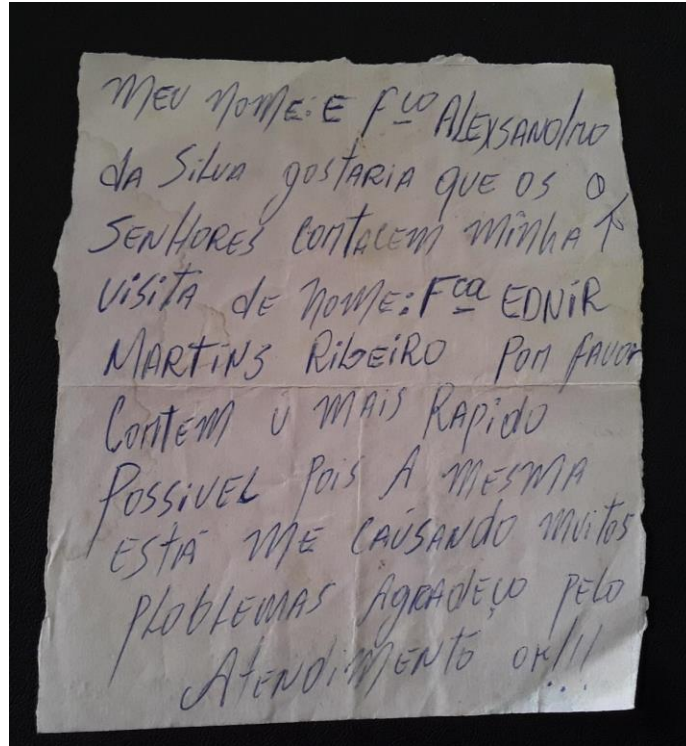 MEU NOME: E Fco ALEXSANDRO
DA SILVA gOSTARIA QUE OS O
SENHORES CORTACEM MINHA
VISITA dE NOME: Fca EDNIR
MARTINS RIBEIRO POR FAVOR
CORTEM U MAIS RAPIDO
POSSIVEL POIS A MESMA
ESTÁ ME CAUSANDO MUITOS
PLOBLEMAS AGRADEÇO PELO
ATENDIMENTO OK!!!